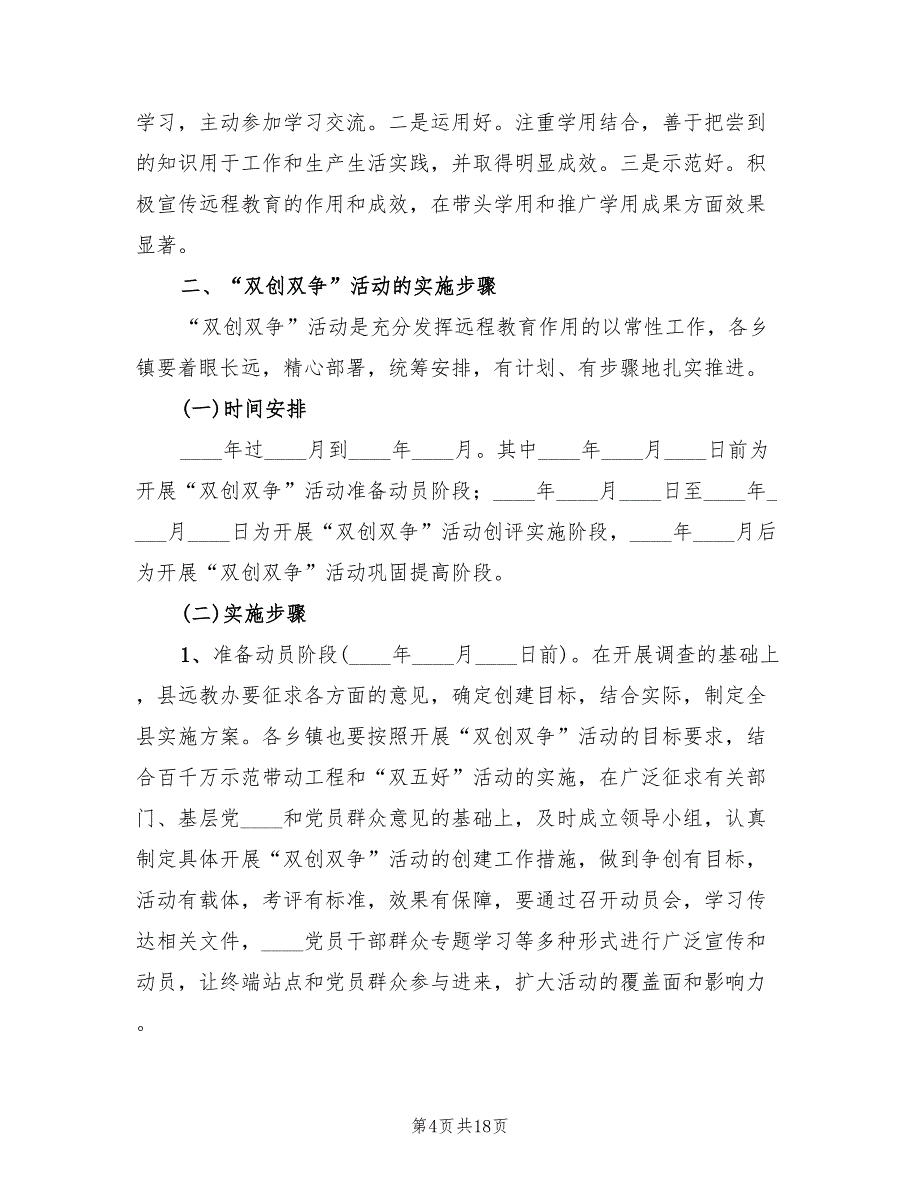 学习，主动参加学习交流。二是运用好。注重学用结合，善于把尝到
的知识用于工作和生产生活实践，并取得明显成效。三是示范好。积
极宣传远程教育的作用和成效，在带头学用和推广学用成果方面效果
显著。
二、“双创双争”活动的实施步骤
“双创双争”活动是充分发挥远程教育作用的以常性工作，各乡
镇要着眼长远，精心部署，统筹安排，有计划、有步骤地扎实推进。
(一)时间安排
____年过____月到____年____月。其中____年____月____日前为
开展“双创双争”活动准备动员阶段；____年____月____日至____年_
___月____日为开展“双创双争”活动创评实施阶段，____年____月后
为开展“双创双争”活动巩固提高阶段。
(二)实施步骤
1、准备动员阶段(____年____月____日前)。在开展调查的基础上
，县远教办要征求各方面的意见，确定创建目标，结合实际，制定全
县实施方案。各乡镇也要按照开展“双创双争”活动的目标要求，结
合百千万示范带动工程和“双五好”活动的实施，在广泛征求有关部
门、基层党____和党员群众意见的基础上，及时成立领导小组，认真
制定具体开展“双创双争”活动的创建工作措施，做到争创有目标，
活动有载体，考评有标准，效果有保障，要通过召开动员会，学习传
达相关文件，____党员干部群众专题学习等多种形式进行广泛宣传和
动员，让终端站点和党员群众参与进来，扩大活动的覆盖面和影响力
。
第4页共18页